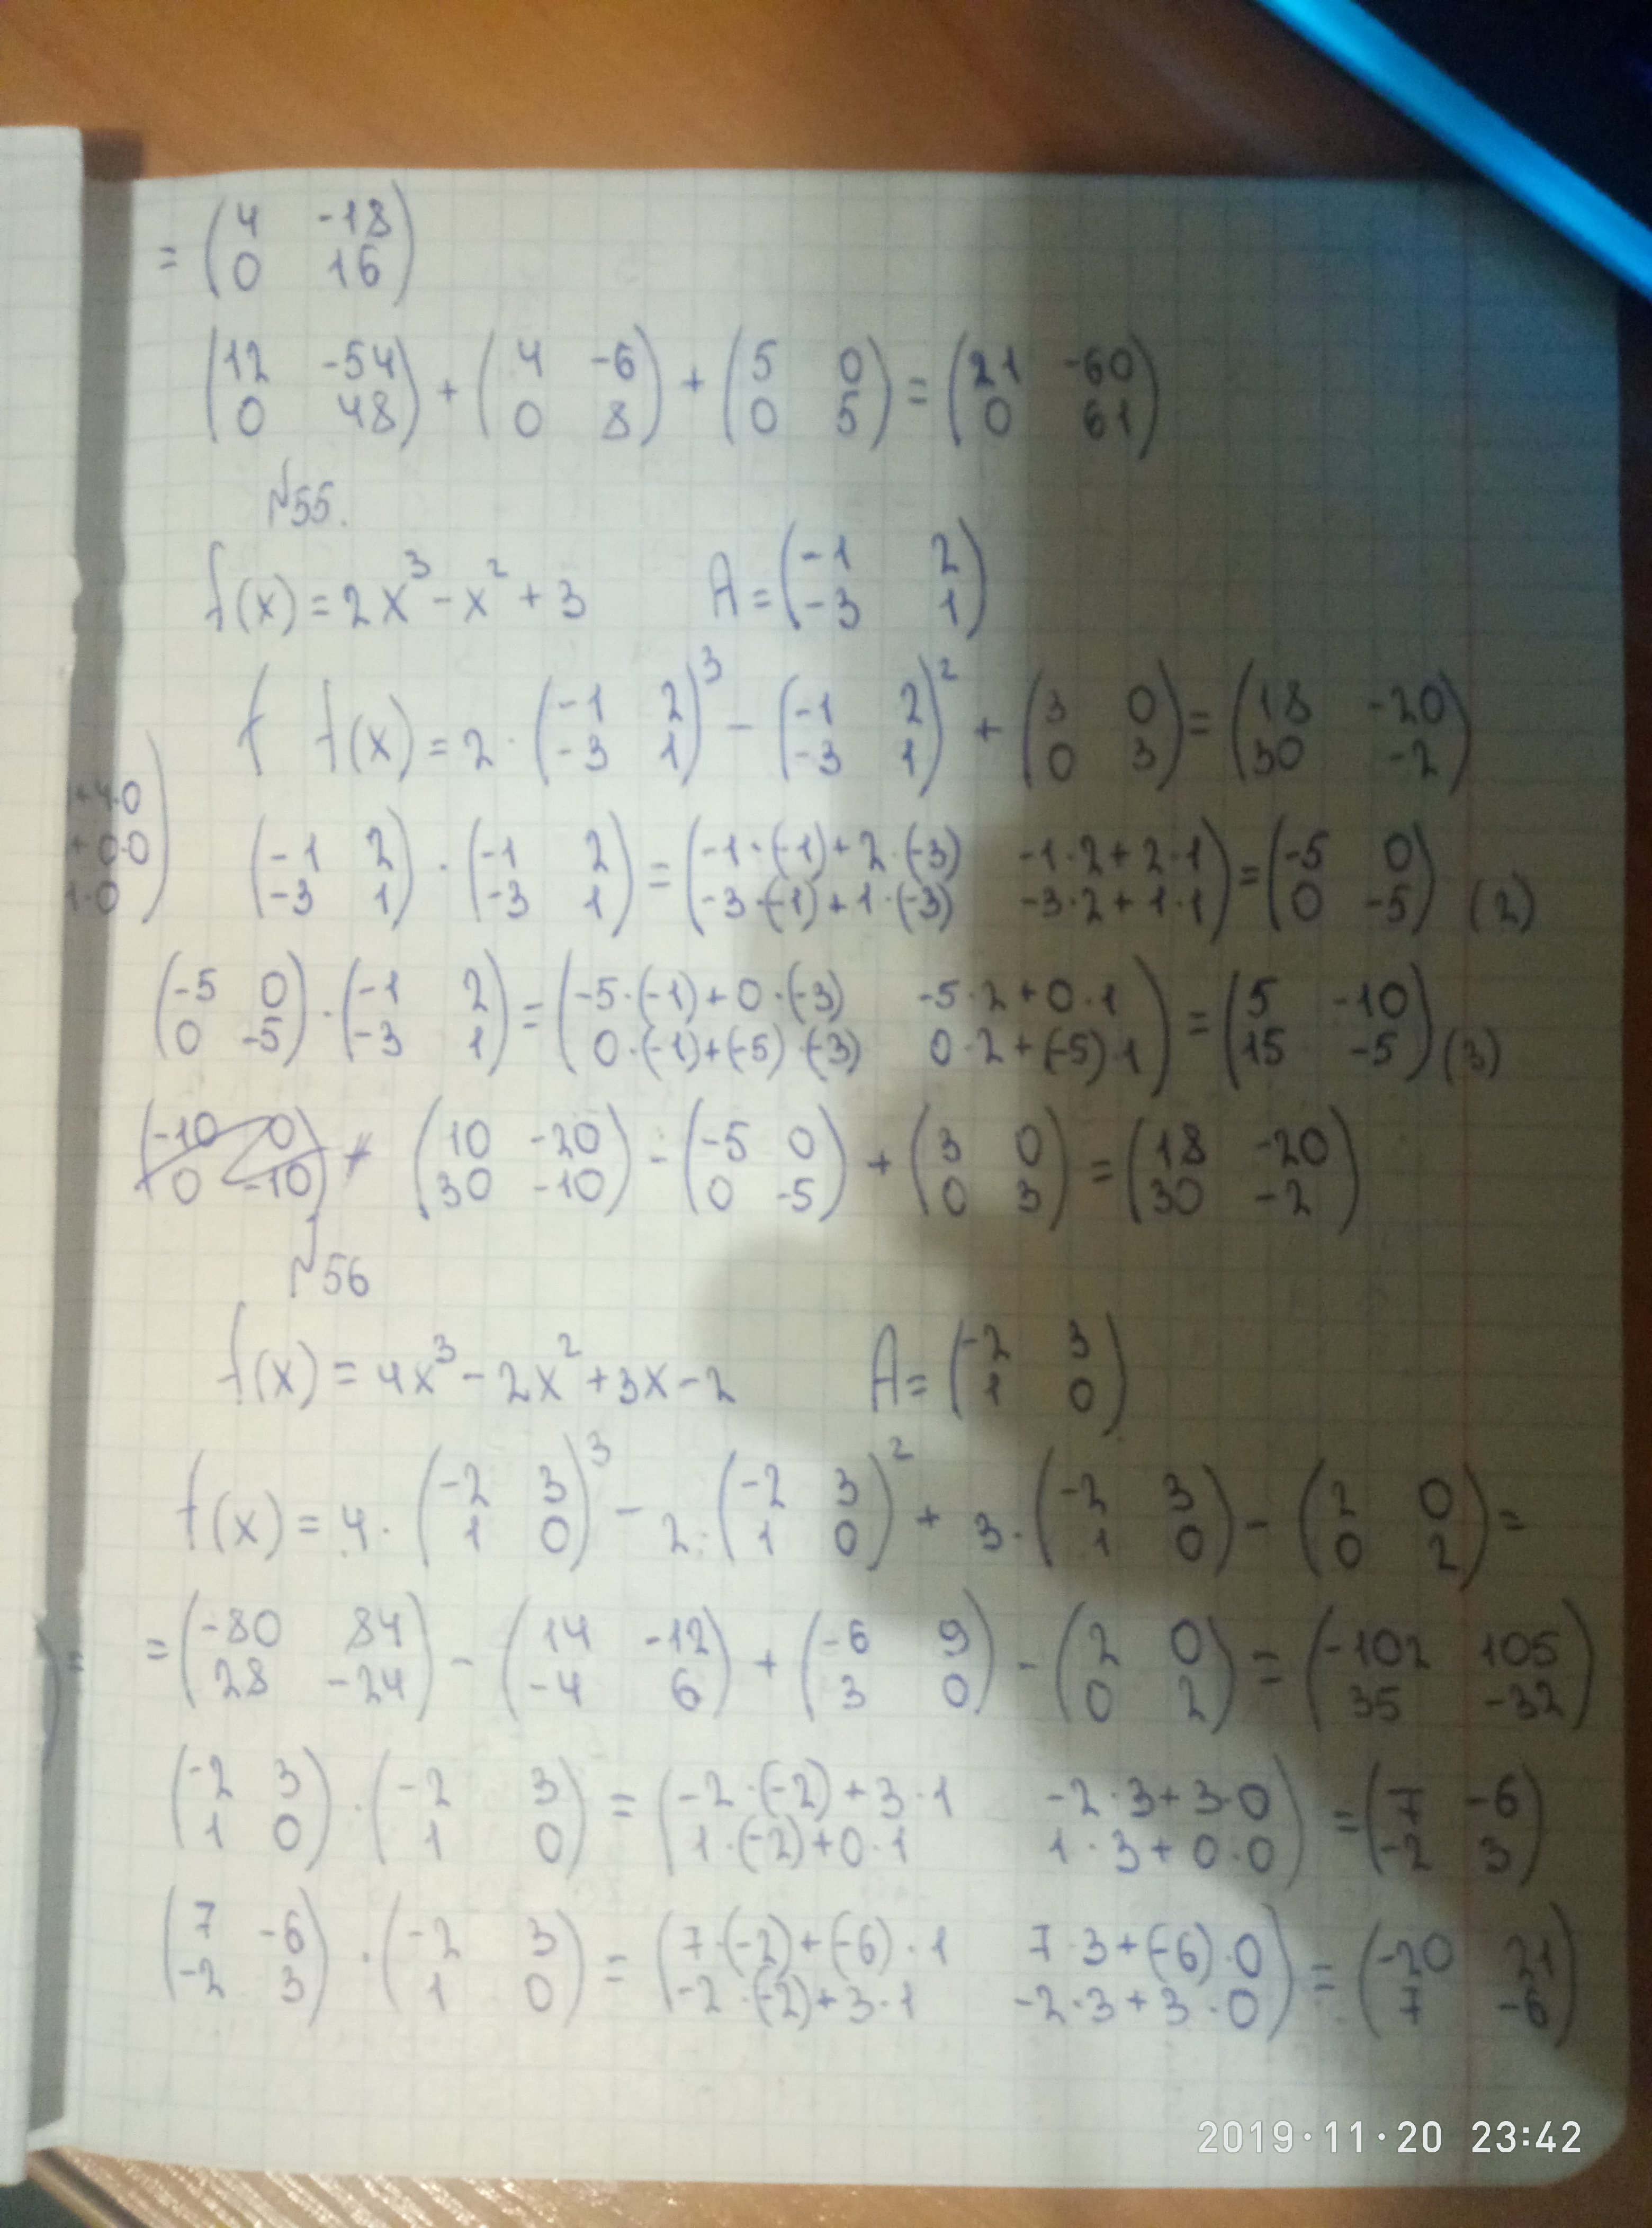 = (4 -18
0 16)
(12 -54
0 48) + (4 -6
0 8) + (5 0
0 5) = (21 -60
0 61)
№55.
f(x) = 2x³ - x² + 3 A = (-1 2
-3 1)
f f(x) = 2 · (-1 2
-3 1)³ - (-1 2
-3 1)² + (3 0
0 3) = (18 -20
30 -2)
+4·0
+0·0
1·0)
(-1 2
-3 1) · (-1 2
-3 1) = (-1·(-1)+2·(-3) -1·2+2·1
-3·(-1)+1·(-3) -3·2+1·1) = (-5 0
0 -5) (2)
(-5 0
0 -5) · (-1 2
-3 1) = (-5·(-1)+0·(-3) -5·2+0·1
0·(-1)+(-5)·(-3) 0·2+(-5)·1) = (5 -10
15 -5) (3)
(-10 0
0 -10) + (10 -20
30 -10) - (-5 0
0 -5) + (3 0
0 3) = (18 -20
30 -2)
№56
f(x) = 4x³ - 2x² + 3x - 2 A = (-2 3
1 0)
f(x) = 4 · (-2 3
1 0)³ - 2 · (-2 3
1 0)² + 3 · (-2 3
1 0) - (2 0
0 2) =
= (-80 84
28 -24) - (14 -12
-4 6) + (-6 9
3 0) - (2 0
0 2) = (-102 105
35 -32)
(-2 3
1 0) · (-2 3
1 0) = (-2·(-2)+3·1 -2·3+3·0
1·(-2)+0·1 1·3+0·0) = (7 -6
-2 3)
(7 -6
-2 3) · (-2 3
1 0) = (7·(-2)+(-6)·1 7·3+(-6)·0
-2·(-2)+3·1 -2·3+3·0) = (-20 21
7 -6)
2019·11·20 23:42